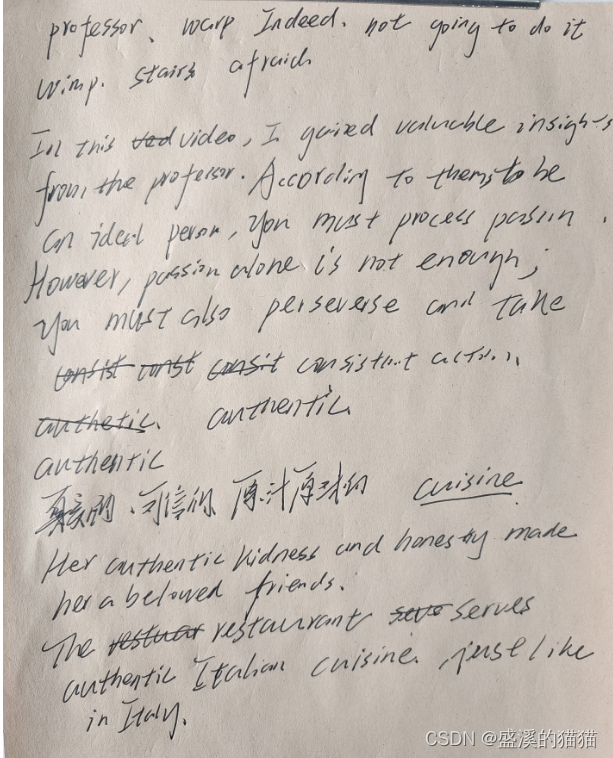 professor. warp Indeed. not going to do it
wimp. stairs afraid
In this video, I gained valuable insights
from the professor. According to them to be
an ideal person, you must process passion.
However, passion alone is not enough;
you must also perseverse and take
consist const consit consistent action.
authetic. authentic.
authentic
真实的、可信的 原汁原味的 cuisine
Her authentic kidness and honesty made
her a beloved friends.
The restuar restaurant serve serves
authentic Italian cuisine. just like
in Italy.
CSDN @盛溪的猫猫